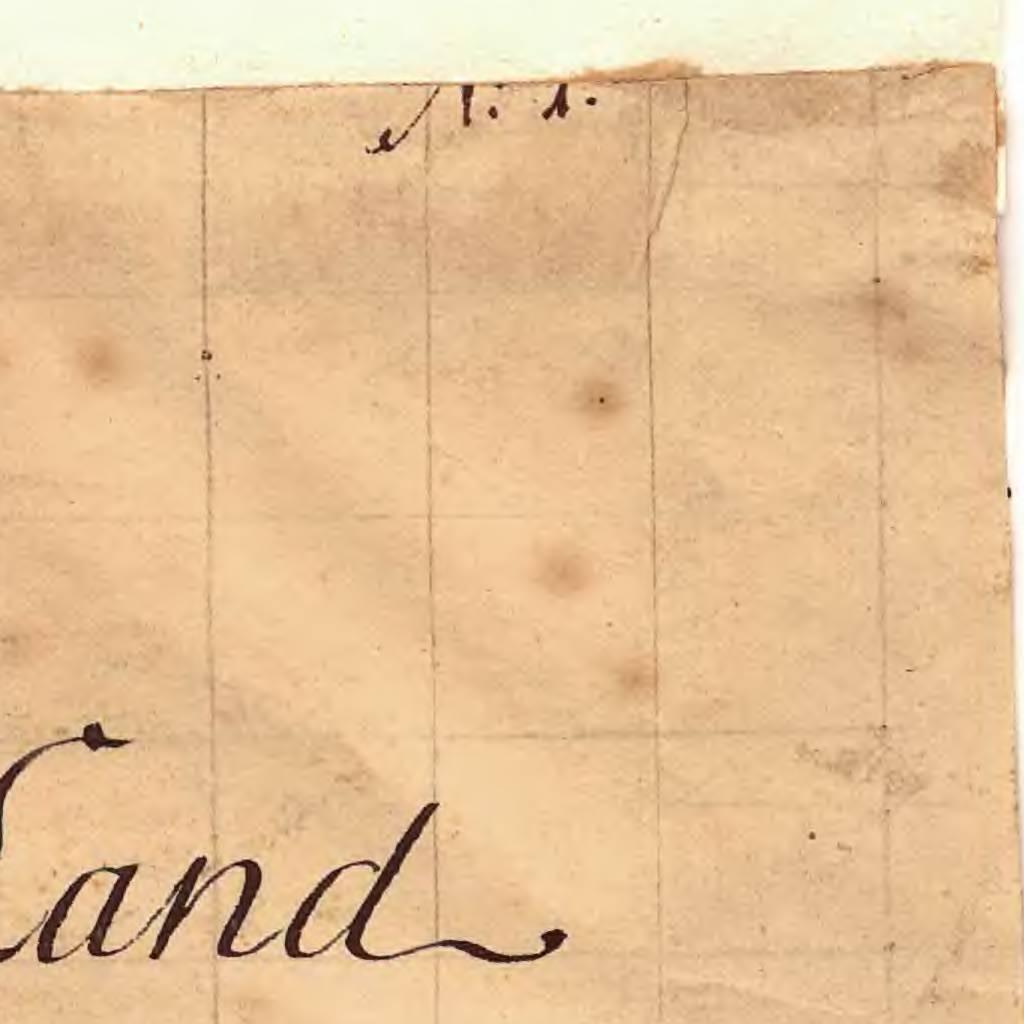 N. 1.
Land